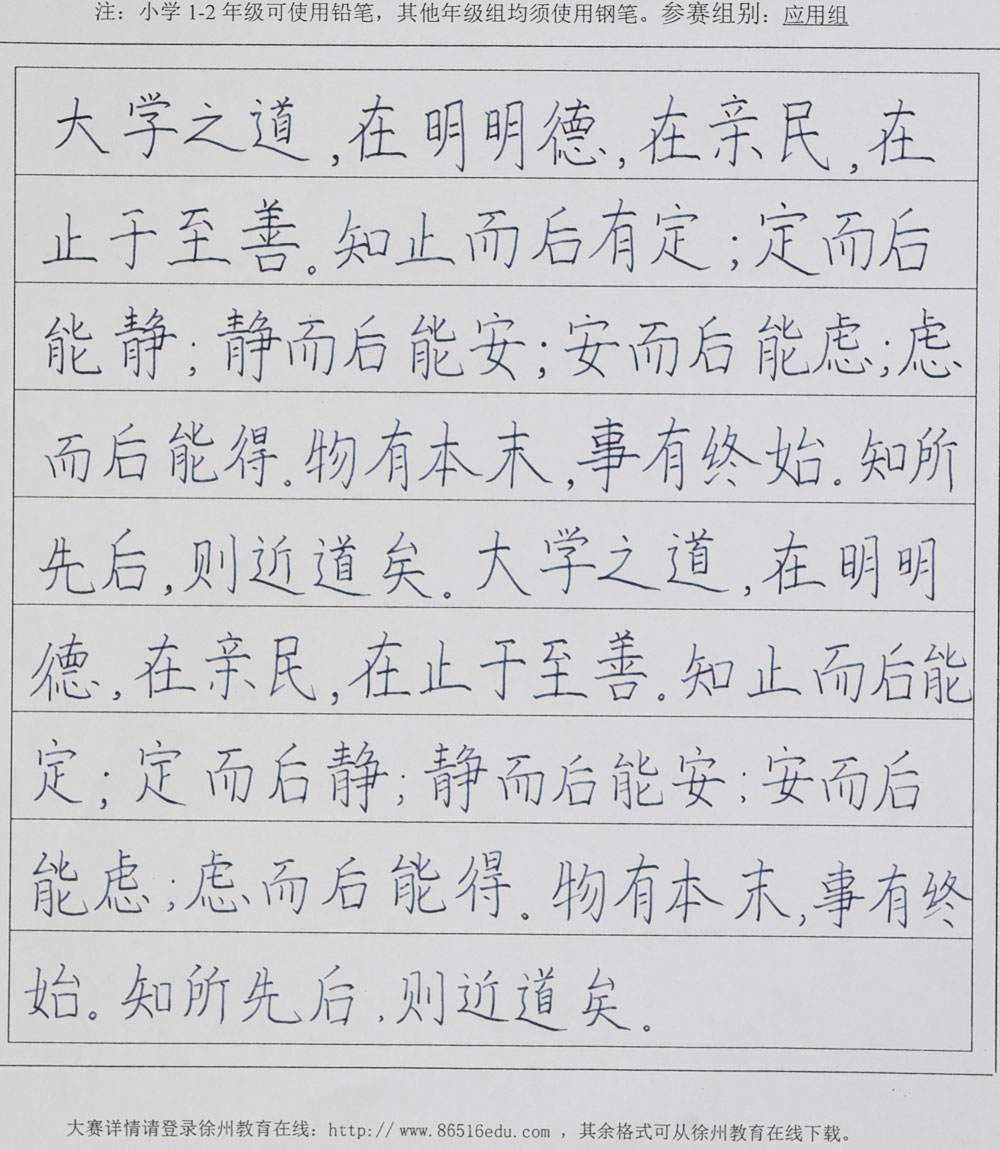 注：小学1-2年级可使用铅笔，其他年级组均须使用钢笔。参赛组别：应用组
大学之道，在明明德，在亲民，在
止于至善。知止而后有定；定而后
能静；静而后能安；安而后能虑；虑
而后能得。物有本末，事有终始。知所
先后，则近道矣。大学之道，在明明
德，在亲民，在止于至善。知止而后能
定；定而后静；静而后能安；安而后
能虑；虑而后能得。物有本末，事有终
始。知所先后，则近道矣。
大赛详情请登录徐州教育在线：http://www.86516edu.com，其余格式可从徐州教育在线下载。